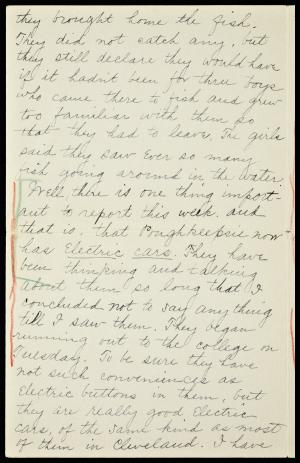 they brought home the fish.
They did not catch any, but
they still declare they would have
if it hadn't been for three boys
who came there to fish and grew
too familiar with them so
that they had to leave. The girls
said they saw ever so many
fish going around in the water.
Well there is one thing import-
ant to report this week, and
that is, that Poughkeepsie now
has Electric cars. They have
been thinking and talking
about them so long that I
concluded not to say anything
till I saw them. They began
running out to the college on
Tuesday. To be sure they have
not such conveniences as
Electric buttons in them, but
they are really good Electric
cars, of the same kind as most
of them in Cleveland. I have